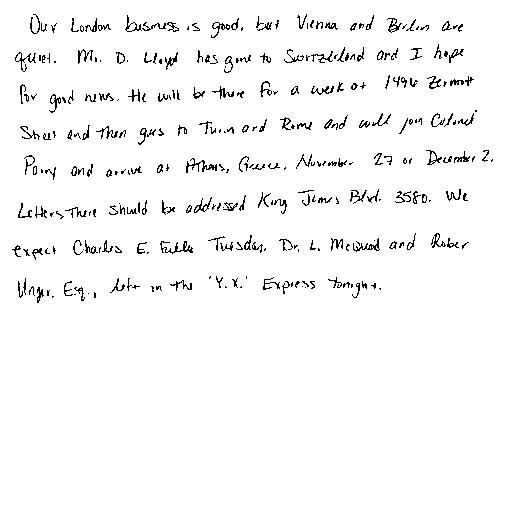 Our London business is good, but Vienna and Berlin are
quiet. Mr. D. Lloyd has gone to Switzerland and I hope
for good news. He will be there for a week at 1496 Zermott
Street and then goes to Turin and Rome and will join Colonel
Parry and arrive at Athens, Greece, November 27 or December 2.
Letters there should be addressed King James Blvd. 3580. We
expect Charles E. Fuller Tuesday. Dr. L. McQuaid and Robert
Unger, Esq., left on the 'Y.X.' Express tonight.